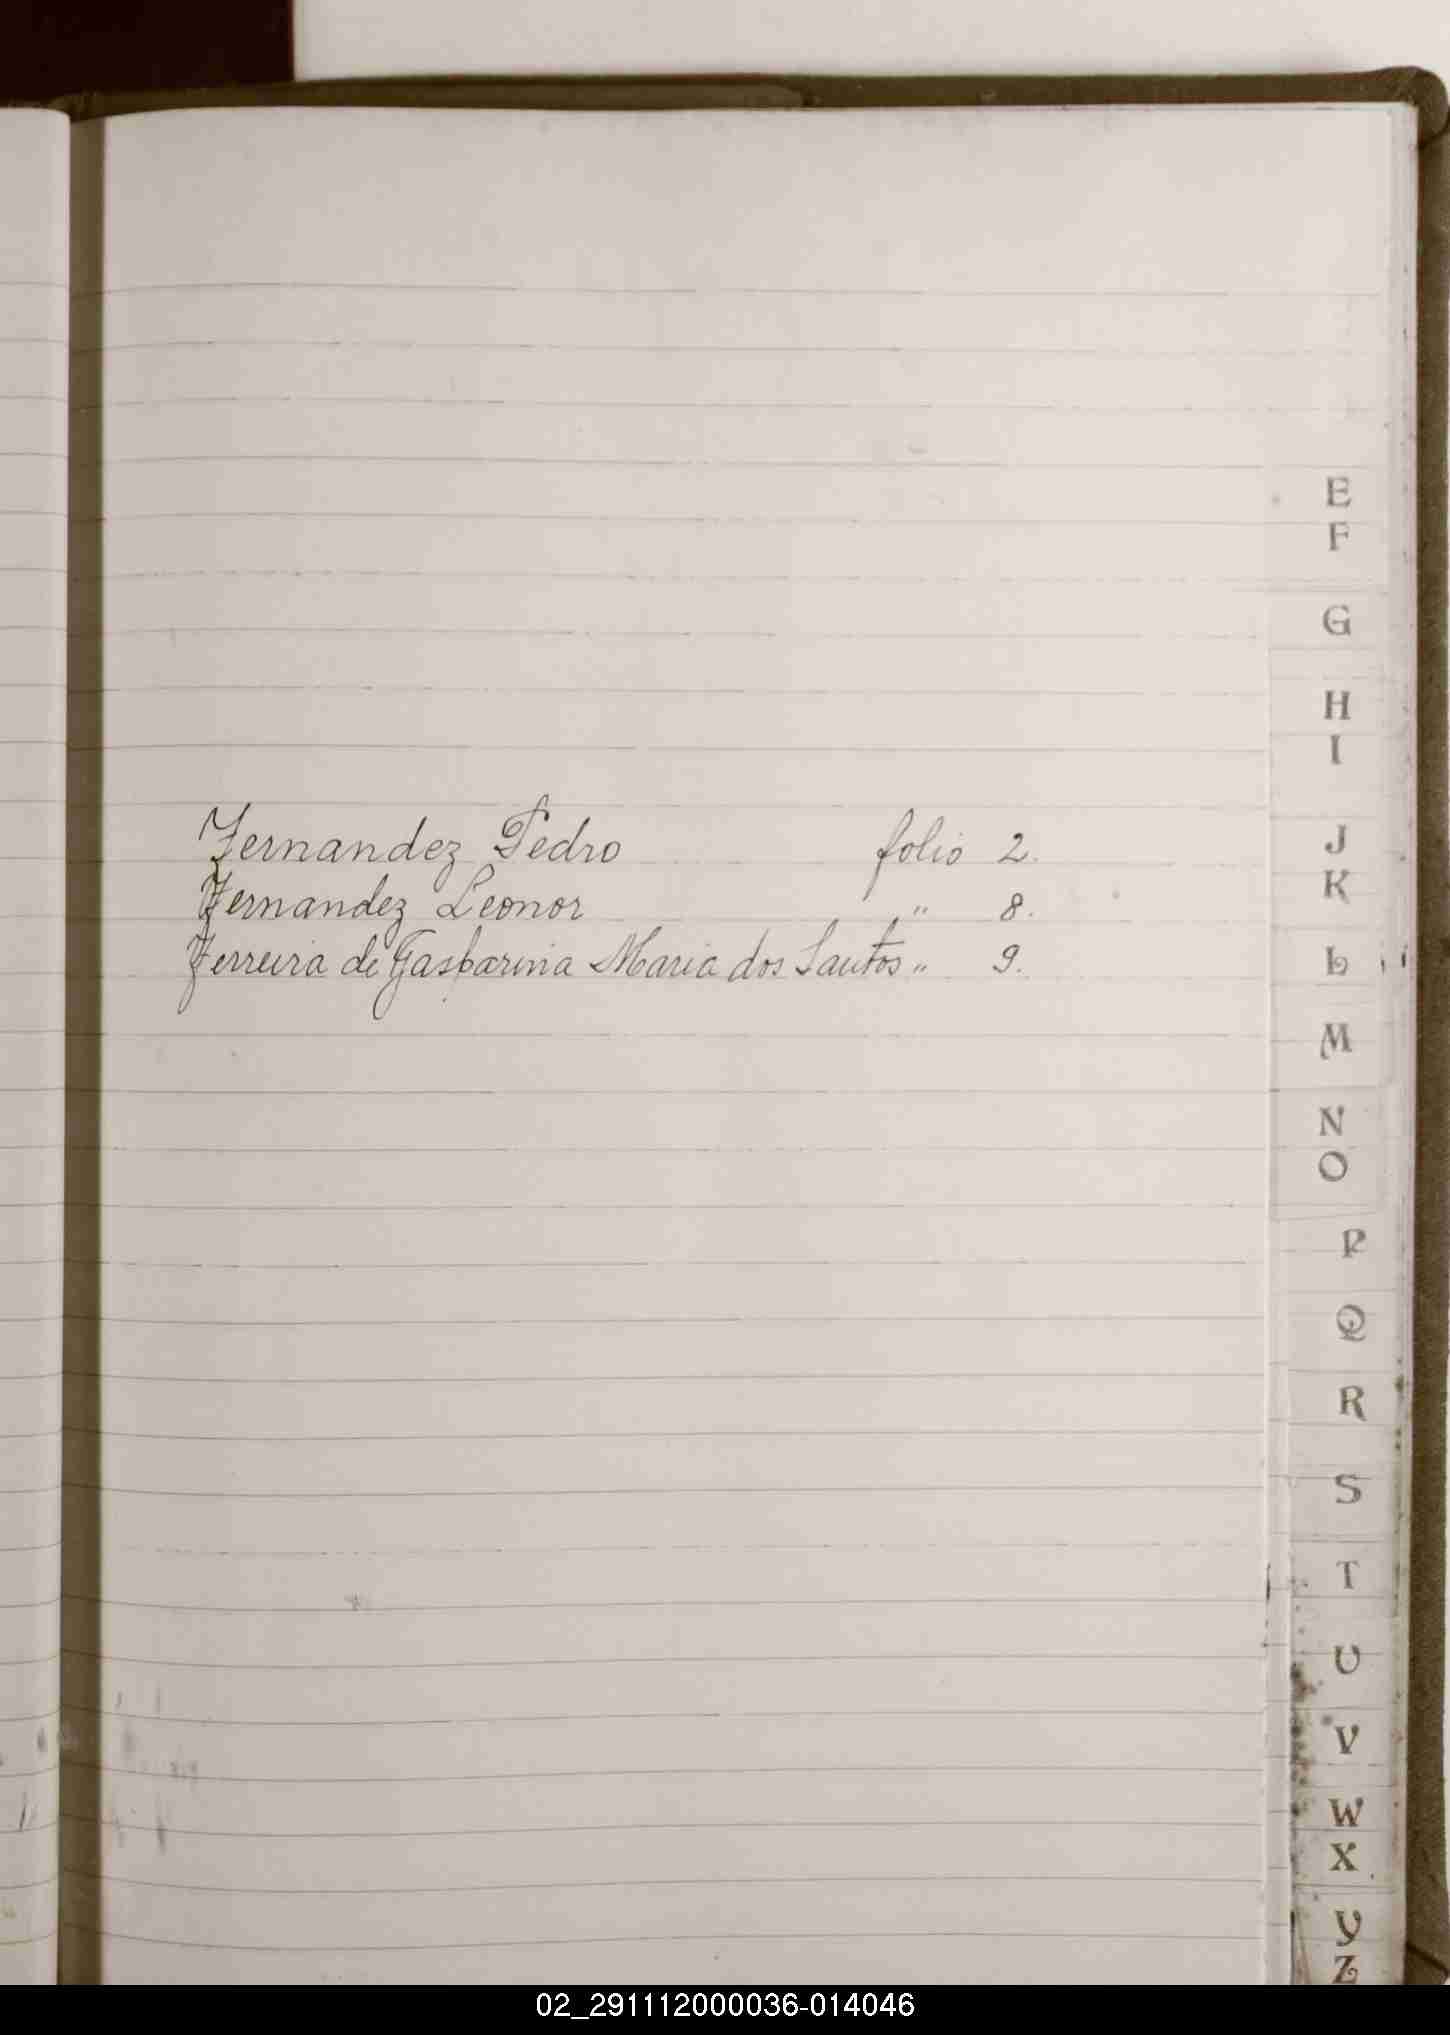 E
F
G
H
I
Fernandez Pedro folio 2.
J
K
Fernandez Leonor " 8.
Ferreira de Gasparina Maria dos Santos " 9.
L
M
N
O
P
Q
R
S
T
U
V
W
X
Y
Z
02_291112000036-014046